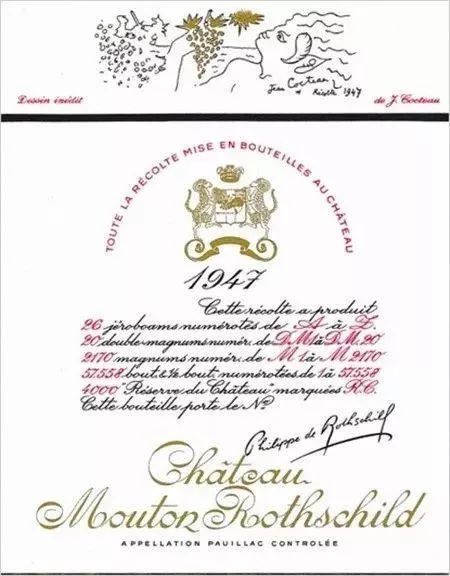 Jean Cocteau
* Récolte 1947
Dessin inédit
de J. Cocteau
TOUTE LA RÉCOLTE MISE EN BOUTEILLES AU CHÂTEAU
1947
Cette récolte a produit
26 jéroboams numérotés de A à Z
20 double-magnums numér. de D.M 1 à D.M. 20
2170 magnums numér. de M 1 à M 2170
57558 bout. & ½ bout. numérotées de 1 à 57558
4000 "Réserve du Château" marquées R.C.
Cette bouteille porte le Nº
Philippe de Rothschild
Château
Mouton Rothschild
APPELLATION PAUILLAC CONTROLÉE